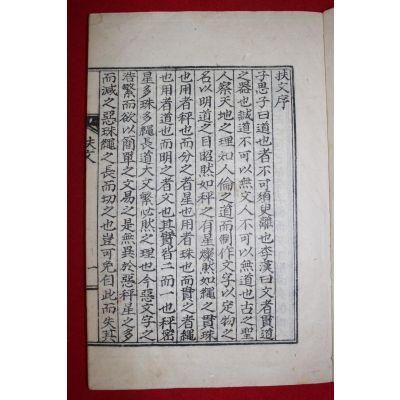 扶文序
子思子曰道也者不可須臾離也李漢曰文者貫道
之器也誠道不可以無文人不可以無道也古之聖
人察天地之理知人倫之道而制作文字以定物之
名以明道之目昭然如秤之有星燦然如繩之貫珠
也用秤也而分之者星也用者珠也而貫之者繩
也用者道也而明之者文也其實皆二而一也秤密
星多珠多繩長道大文繁必然之理也今惡文字之
浩繁而欲以簡單之文易之是無異於惡秤星之多
而減之惡珠繩之長而切之也豈可免自此而失其
扶文
一